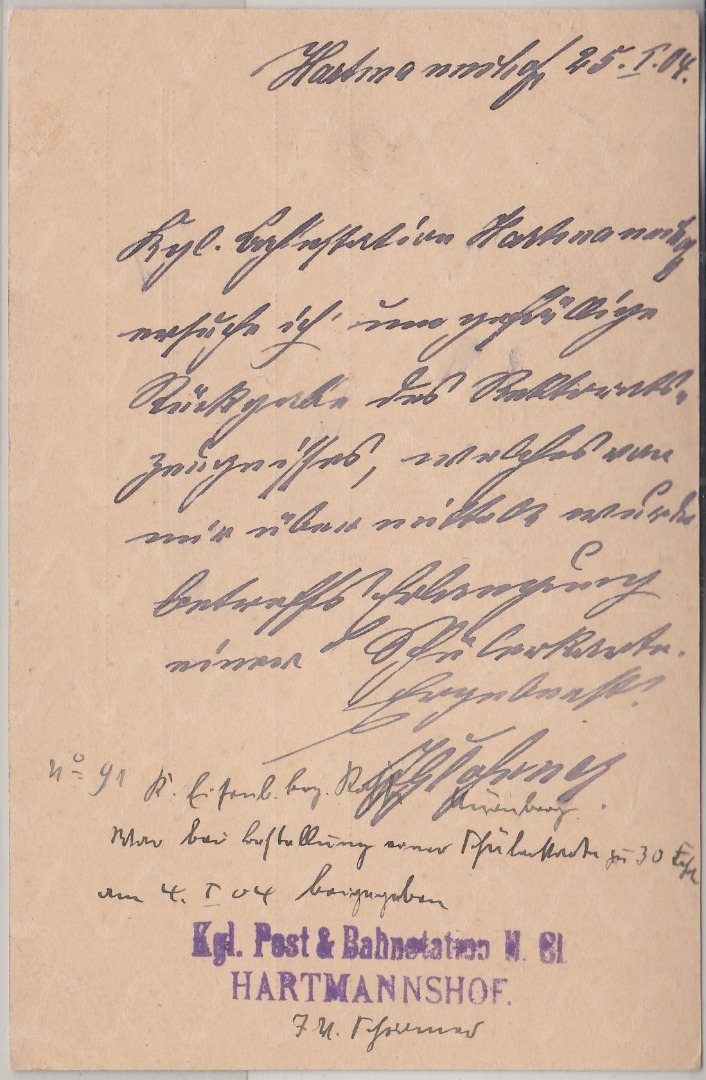 Hartmannshof 25. I. 04.
Kgl. Bahnstation Hartmannshof
ersuche ich um gefällige
Rückgabe des Rektorats-
zeugnisses, welches von
mir übermittelt wurde
betreffs Erlangung
einer Schülerkarte.
Ergebenst
No 91 K. Eisenb. Nürnberg.
War bei Bestellung einer Schülerkarte zu 30
am 4. I 04 beigegeben
Kgl. Post & Bahnstation N. Cl.
HARTMANNSHOF.